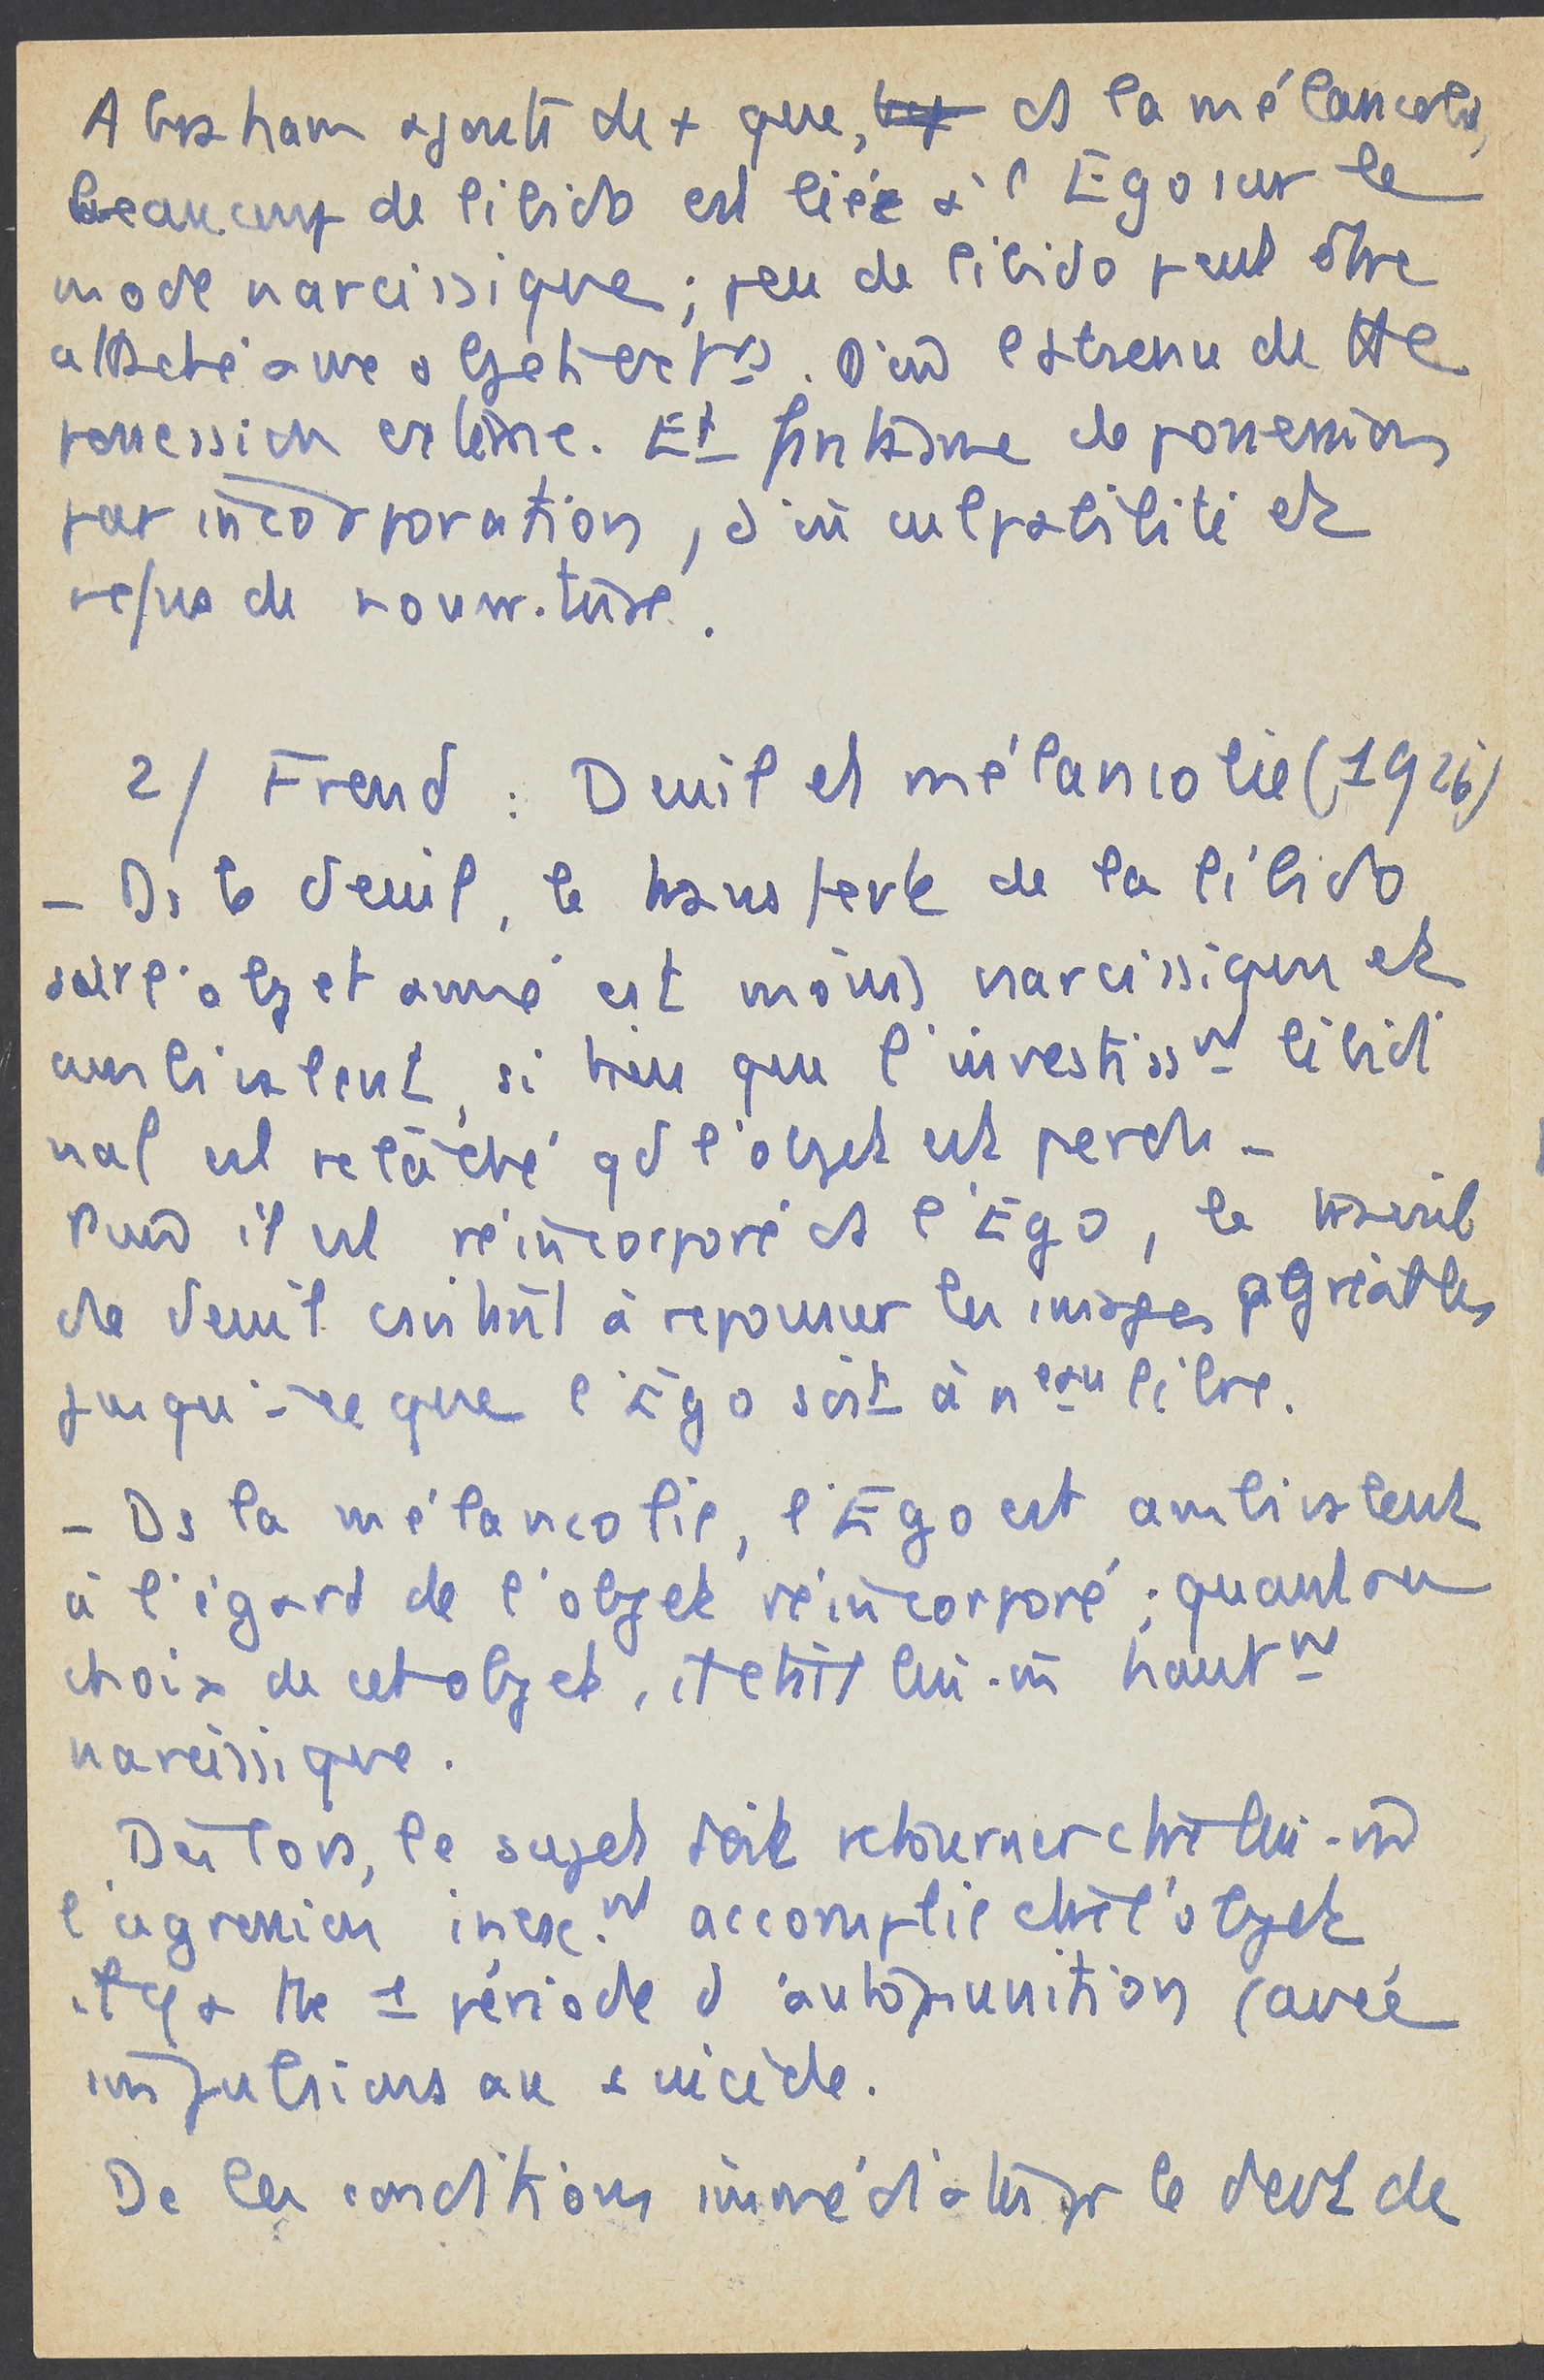 Abraham ajoute de + que, ds la mélancolie,
beaucoup de libido est liée à l'Ego sur le
mode narcissique ; peu de libido peut être
attaché à une objet. D'où crainte de tte
possession externe. Et fantasme de possession
par incorporation, d'où culpabilité et
refus de nourriture.
2/ Freud : Deuil et mélancolie (1926)
- Ds le deuil, le transfert de la libido
sur l'objet aimé est moins narcissique et
ambivalent, si bien que l'investissnt libidi
nal est relâché qd l'objet est perdu -
Puis il est réincorporé ds l'Ego, le travail
de deuil consistant à repousser les images agréables
jusqu'à ce que l'Ego soit à nveau libre.
- Ds la mélancolie, l'Ego est ambivalent
à l'égard de l'objet réincorporé ; quant au
choix de cet objet, il était lui-m hautnt
narcissique.
Dès lors, le sujet doit retourner ctre lui-m
l'agression accomplie ctre l'objet
il y a tte 1 période d'autopunition (avec
impulsions au suicide.
De les conditions immédiates pr le deuil de